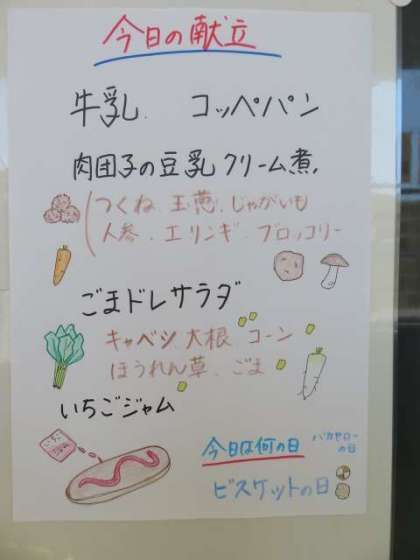 今日の献立
牛乳. コッペパン
肉団子の豆乳クリーム煮.
つくね. 玉葱. じゃがいも
人参. エリンギ. ブロッコリー
ごまドレサラダ
キャベツ. 大根 コーン
ほうれん草. ごま
いちごジャム
今日は何の日
バカヤローの日
ビスケットの日